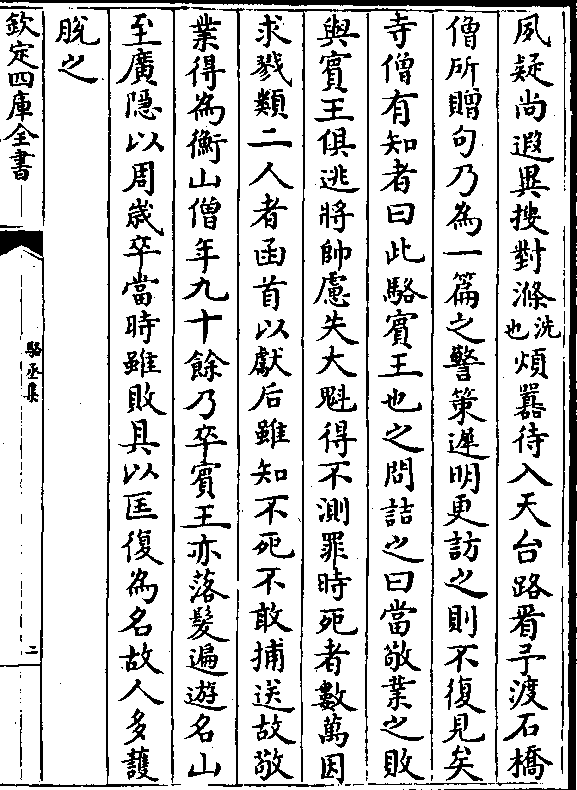 夙疑尚遐異搜對滌洗也煩囂待入天台路看予渡石橋
僧所贈句乃為一篇之警策遲明更訪之則不復見矣
寺僧有知者曰此駱賓王也之問詰之曰當敬業之敗
與賓王俱逃將帥慮失大魁得不測罪時死者數萬因
求戮類二人者函首以獻后雖知不死不敢捕送故敬
業得為衡山僧年九十餘乃卒賓王亦落髮遍遊名山
至廣隠以周歲卒當時雖敗具以匡復為名故人多護
脫之
欽定四庫全書
駱丞集
二